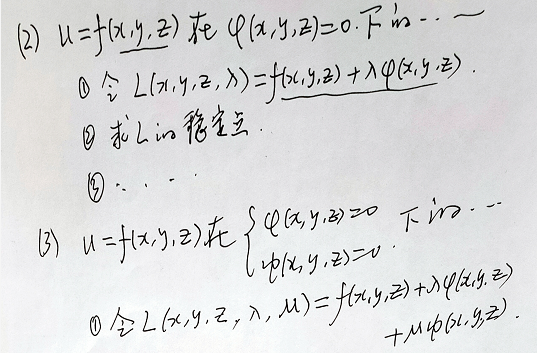 (2) u=f(x,y,z) 在 φ(x,y,z)=0. 下的...~
① 令 L(x,y,z,λ)=f(x,y,z)+λφ(x,y,z).
② 求L的稳定点.
③ . . . .
(3) u=f(x,y,z)在 { φ(x,y,z)=0 下的...
ψ(x,y,z)=0.
① 令 L(x,y,z,λ,μ)=f(x,y,z)+λφ(x,y,z)
+μψ(x,y,z).